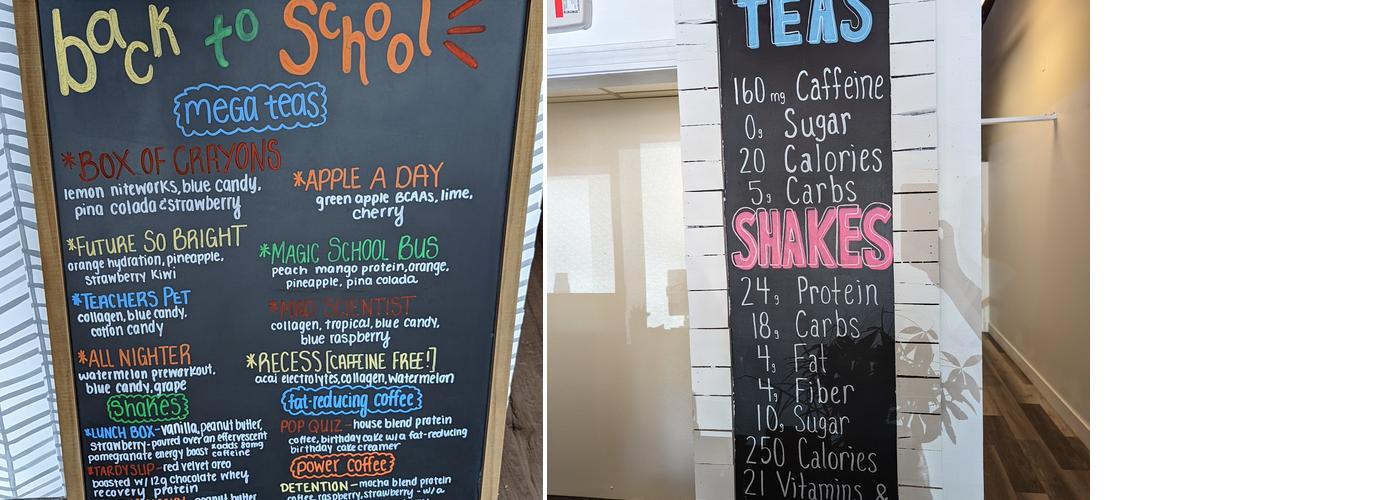 back to School
mega teas
*BOX OF CRAYONS
lemon niteworks, blue candy,
pina colada & strawberry
*APPLE A DAY
green apple BCAAs, lime,
cherry
*FUTURE SO BRIGHT
orange hydration, pineapple,
strawberry kiwi
*MAGIC SCHOOL BUS
peach mango protein, orange,
pineapple, pina colada
*TEACHERS PET
collagen, blue candy,
cotton candy
*MAD SCIENTIST
collagen, tropical, blue candy,
blue raspberry
*ALL NIGHTER
watermelon preworkout,
blue candy, grape
*RECESS [CAFFEINE FREE!]
acai electrolytes, collagen, watermelon
shakes
*LUNCH BOX - vanilla, peanut butter,
strawberry - poured over an effervescent
pomegranate energy boost *adds 80mg
caffeine
*TARDY SLIP - red velvet oreo
boasted w/ 12g chocolate whey
recovery protein
peanut butter
fat-reducing coffee
POP QUIZ - house blend protein
coffee, birthday cake w/ a fat-reducing
birthday cake creamer
power coffee
DETENTION - mocha blend protein
coffee, raspberry, strawberry - w/ a
TEAS
160 mg Caffeine
0g Sugar
20 Calories
5g Carbs
SHAKES
24g Protein
18g Carbs
4g Fat
4g Fiber
10g Sugar
250 Calories
21 Vitamins &